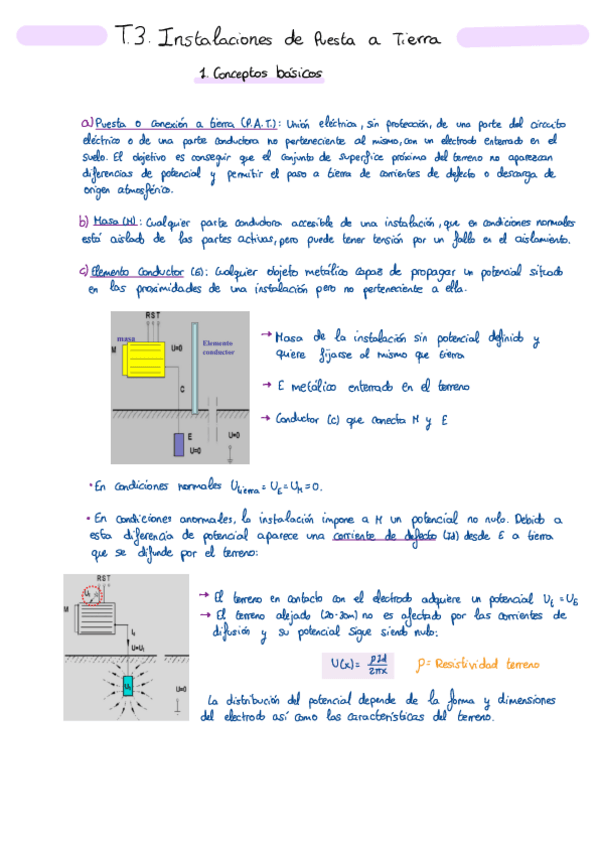 T.3. Instalaciones de Puesta a Tierra
1. Conceptos básicos
a) Puesta o conexión a tierra (P.A.T.): Unión eléctrica, sin protección, de una parte del circuito
eléctrico o de una parte conductora no perteneciente al mismo, con un electrodo enterrado en el
suelo. El objetivo es conseguir que el conjunto de superfice próxima del terreno no aparezcan
diferencias de potencial y permitir el paso a tierra de corrientes de defecto o descarga de
origen atmosférico.
b) Masa (M): Cualquier parte conductora accesible de una instalación, que en condiciones normales
está aislado de las partes activas, pero puede tener tensión por un fallo en el aislamiento.
c) Elemento conductor (G): Cualquier objeto metálico capaz de propagar un potencial situado
en las proximidades de una instalación pero no perteneciente a ella.
R S T
masa
M
U=0
Elemento
conductor
C
E
U=0
U=0
→ Masa de la instalación sin potencial definido y
quiere fijarse al mismo que tierra
→ E metálico enterrado en el terreno
→ Conductor (C) que conecta M y E
• En condiciones normales Utierra = UE = UM = 0.
• En condiciones anormales, la instalación impone a M un potencial no nulo. Debido a
esta diferencia de potencial aparece una corriente de defecto (Id) desde E a tierra
que se difunde por el terreno:
RST
M
Id
U=0
→ El terreno en contacto con el electrodo adquiere un potencial Ut = UE
→ El terreno alejado (20-30m) no es afectado por las corrientes de
difusión y su potencial sigue siendo nulo:
U(x) = ρId / 2πx ρ = Resistividad terreno
La distribución del potencial depende de la forma y dimensiones
del electrodo así como las características del terreno.